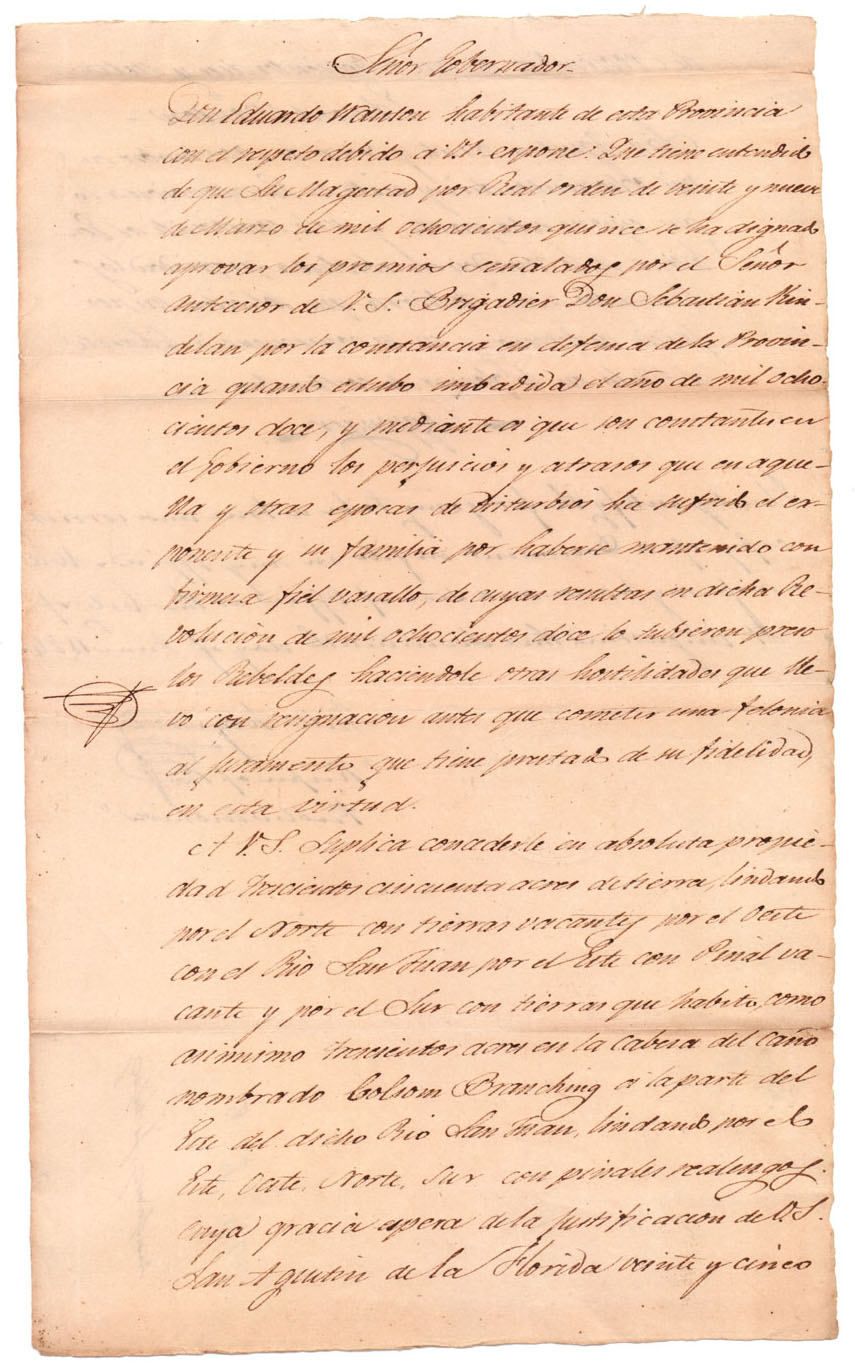 Señor Gobernador
Don Eduardo Wanton habitante de esta Provincia
con el respeto debido à V.S. expone: Que tiene entendido
de que Su Magestad por Real orden de veinte y nueve
de Marzo de mil ochocientos quince se ha dignado
aprovar los premios señalados por el Señor
antecesor de V. S. Brigadier Don Sebastián Kin-
delan por la constancia en defensa de la Provin-
cia quando estubo imbadida el año de mil ocho-
cientos doce, y mediante á que son constantes en
el Gobierno los perjuicios y atrasos que en aque-
lla y otras epocas de disturbios ha sufrido el ex-
ponente y su familia por haberse mantenido con
firmesa fiel vasallo, de cuyas resultas en dicha Re-
volución de mil ochocientos doce lo tubieron preso
los Rebeldes haciendole otras hostilidades que lle-
vó con resignacion antes que cometer una felonia
al juramento que tiene prestado de su fidelidad,
en esta virtud.
A V. S. Suplica concederle en absoluta propie-
dad trescientos cincuenta acres de tierra, lindando
por el Norte con tierras vacantes por el Oeste
con el Rio San Juan por el Este con Pinal va-
cante y por el Sur con tierras que habito, como
asimismo trescientos acres en la Cabesa del Caño
nombrado Colsom Branching á la parte del
Este del dicho Rio San Juan, lindando por el
Este, Oeste, Norte, Sur con pinales realengos.
cuya gracia espera de la justificacion de V.S.
San Agustin de la Florida veinte y cinco